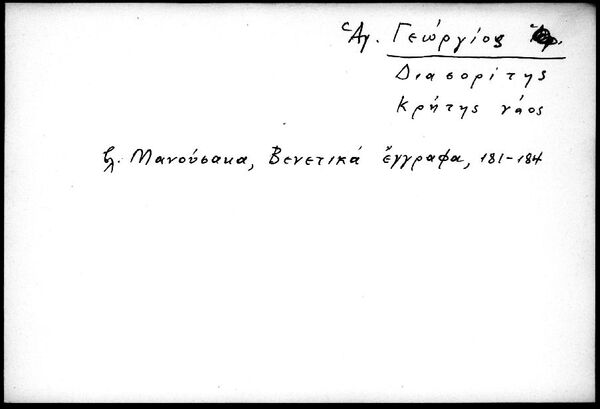 Ἁγ. Γεώργιος
Διασορίτης
Κρήτης νάος
βλ. Μανούσακα, Βενετικά ἔγγραφα, 181-184